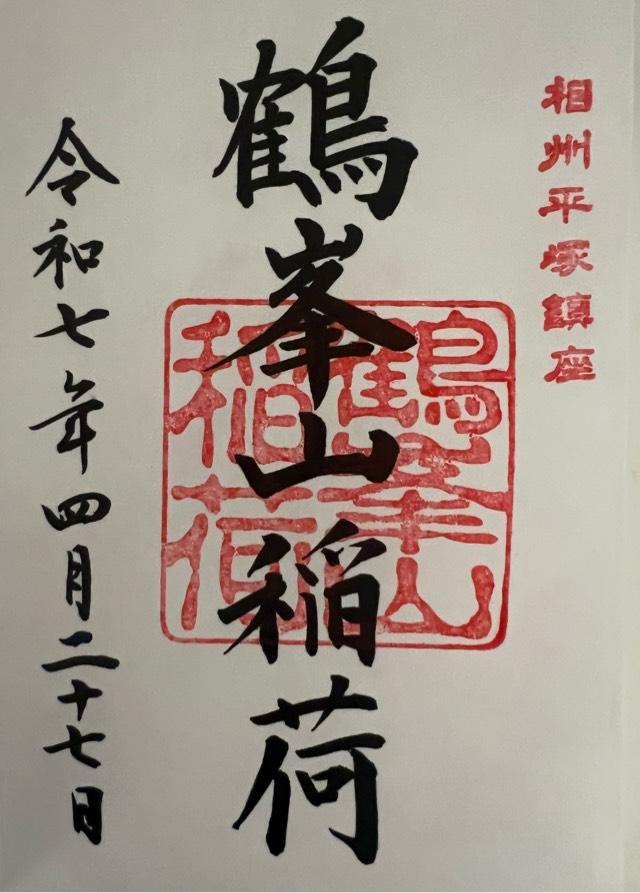 相州平塚鎮座
鶴峯山稲荷
鶴峯山
稲荷
令和七年四月二十七日